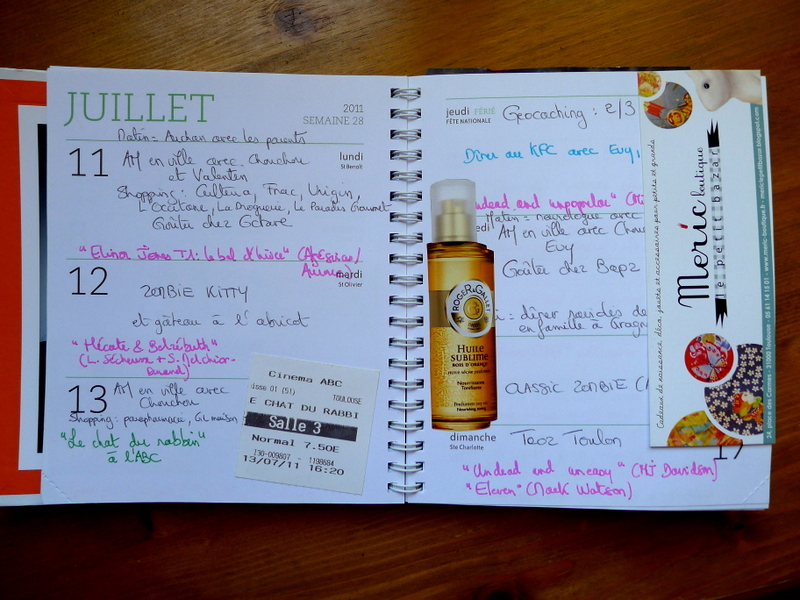 JUILLET
2011
SEMAINE 28
Matin = Auchan avec les parents
11
lundi
St Benoît
AM en ville avec Chouchou
et Valentin
Shopping : Cultura, Fnac, Virgin,
L'Occitane, La Droguerie, Le Paradis Gourmet
Goûter chez Octave
"Elinor Jones T1: Le bal d'hiver" (Algésiras/
12
mardi
St Olivier
ZOMBIE KITTY
et gâteau à l'abricot
"Hécate & Belzébuth"
13
AM en ville avec
Chouchou
Shopping : parapharmacie, Gil maison
"Le chat du rabbin"
à l'ABC
Cinema ABC
TOULOUSE
E CHAT DU RABBI
Salle 3
Normal 7.50E
13/07/11 16:20
jeudi FÉRIÉ
FÊTE NATIONALE
Geocaching : 2/3
Dîner au KFC avec Evy,
Undead and unpopular"
Matin = neurologue avec
AM en ville avec Chou
Evy
Goûter chez Bapz
dîner sushis de
en famille à Gragn
CLASSIC ZOMBIE
dimanche
Ste Charlotte
Troz Toulon
17
"Undead and uneasy" (MJ Davidson)
"Eleven" (Mark Watson)
ROGER & GALLET
HUILE
SUBLIME
BOIS D'ORANGE
Nourrissante
Tonifiante
Meric boutique
le petit bazar
Cadeaux de naissance, déco, jouets et accessoires pour petits et grands
24 place des Carmes - 31000 Toulouse - 05 61 14 15 01 - www.meric-boutique.fr - mericlepetitbazar.blogspot.com